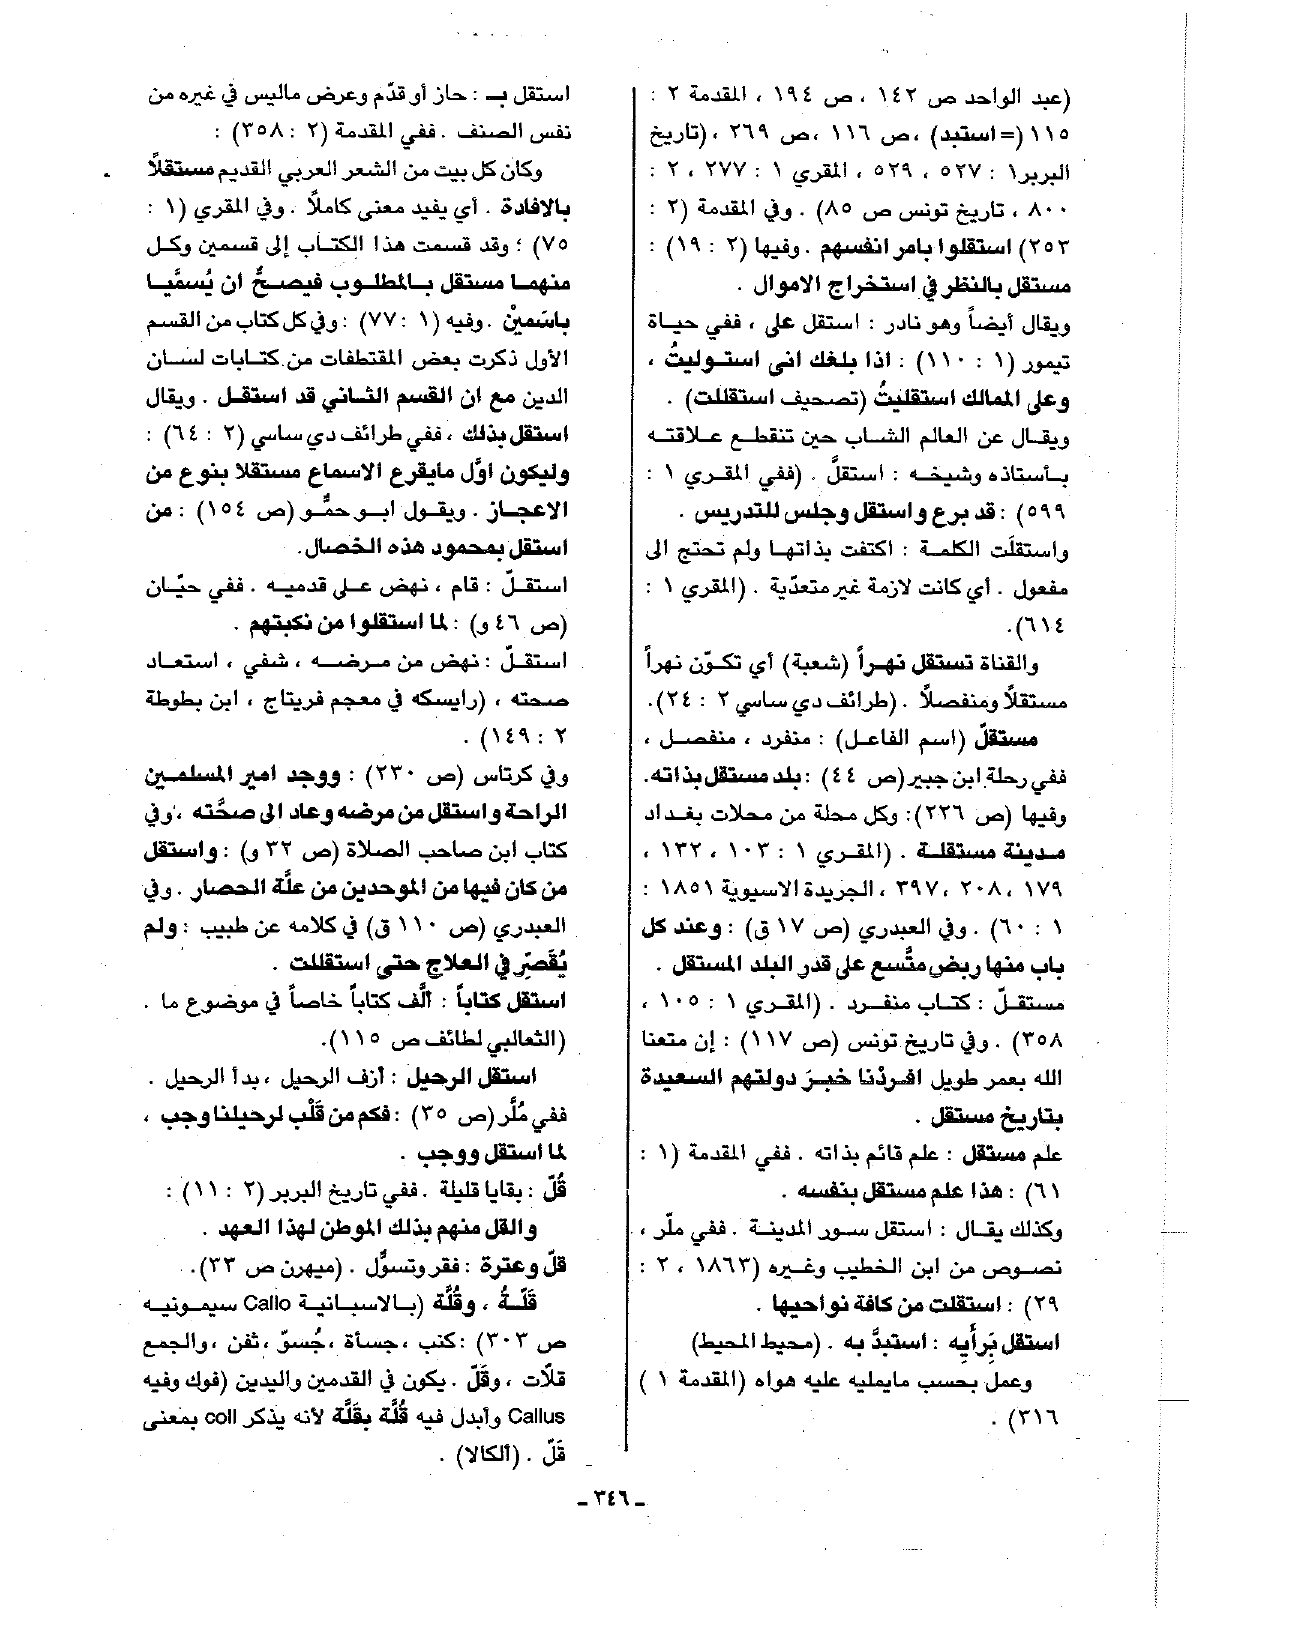 (عبد الواحد ص ١٤٢ ، ص ١٩٤ ، المقدمة ٢ :
١١٥ (= استبد) ، ص ١١٦ ، ص ٢٦٩ ، (تاريخ
البربر١ : ٥٢٧ ، ٥٢٩ ، المقري ١ : ٢٧٧ ، ٢ :
٨٠٠ ، تاريخ تونس ص ٨٥) . وفي المقدمة (٢ :
٢٥٣) استقلوا بامر انفسهم . وفيها (٢ : ١٩) :
مستقل بالنظر في استخراج الاموال .
ويقال أيضاً وهو نادر : استقل على ، ففي حياة
تيمور (١ : ١١٠) : اذا بلغك اني استوليتُ ،
وعلى الممالك استقليتُ (تصحيف استقللت) .
ويقال عن العالم الشاب حين تنقطع علاقته
بأستاذه وشيخه : استقلَّ . (ففي المقري ١ :
٥٩٩) : قد برع واستقل وجلس للتدريس .
واستقلَت الكلمة : اكتفت بذاتها ولم تحتج الى
مفعول . أي كانت لازمة غير متعدّية . (المقري ١ :
٦١٤).
والقناة تستقل نهراً (شعبة) أي تكوّن نهراً
مستقلاً ومنفصلاً . (طرائف دي ساسي ٢ : ٢٤).
مستقلّ (اسم الفاعل) : منفرد ، منفصل ،
ففي رحلة ابن جبير (ص ٤٤) : بلد مستقل بذاته.
وفيها (ص ٢٢٦): وكل محلة من محلات بغداد
مدينة مستقلة . (المقري ١ : ١٠٣ ، ١٣٢ ،
١٧٩ ، ٢٠٨ ، ٣٩٧ ، الجريدة الاسيوية ١٨٥١ :
١ : ٦٠) . وفي العبدري (ص ١٧ ق) : وعند كل
باب منها ربض متَّسع على قدر البلد المستقل .
مستقلّ : كتاب منفرد . (المقري ١ : ١٠٥ ،
٣٥٨) . وفي تاريخ تونس (ص ١١٧) : إن متعنا
الله بعمر طويل افردْنا خبرَ دولتهم السعيدة
بتاريخ مستقل .
علم مستقل : علم قائم بذاته . ففي المقدمة (١ :
٦١) : هذا علم مستقل بنفسه .
وكذلك يقال : استقل سور المدينة . ففي ملّر ،
نصوص من ابن الخطيب وغيره (١٨٦٣ ، ٢ :
٢٩) : استقلت من كافة نواحيها .
استقل بَرأيِه : استبدَّ به . (محيط المحيط)
وعمل بحسب مايمليه عليه هواه (المقدمة ١ )
٣١٦) .
استقل بـ : حاز أو قدّم وعرض ماليس في غيره من
نفس الصنف . ففي المقدمة (٢ : ٣٥٨) :
وكان كل بيت من الشعر العربي القديم مستقلاً
بالافادة . أي يفيد معنى كاملاً . وفي المقري (١ :
٧٥) ؛ وقد قسمت هذا الكتاب إلى قسمين وكل
منهما مستقل بالمطلوب فيصحُّ ان يُسمَّيا
باسْمينْ . وفيه (١ : ٧٧) : وفي كل كتاب من القسم
الأول ذكرت بعض المقتطفات من كتابات لسان
الدين مع ان القسم الثاني قد استقل . ويقال
استقل بذلك ، ففي طرائف دي ساسي (٢ : ٦٤) :
وليكون اوّل مايقرع الاسماع مستقلا بنوع من
الاعجاز . ويقول ابو حمُّو (ص ١٥٤) : من
استقل بمحمود هذه الخصال.
استقلّ : قام ، نهض على قدميه . ففي حيّان
(ص ٤٦ و) : لما استقلوا من نكبتهم .
استقلّ : نهض من مرضه ، شفي ، استعاد
صحته ، (رايسكه في معجم فريتاج ، ابن بطوطة
٢ : ١٤٩) .
وفي كرتاس (ص ٢٣٠) : ووجد امير المسلمين
الراحة واستقل من مرضه وعاد الى صحّته ، وفي
كتاب ابن صاحب الصلاة (ص ٣٢ و) : واستقل
من كان فيها من الموحدين من علَّة الحصار . وفي
العبدري (ص ١١٠ ق) في كلامه عن طبيب : ولم
يُقَصِّر في العلاج حتى استقللت .
استقل كتاباً : ألَّف كتاباً خاصاً في موضوع ما .
(الثعالبي لطائف ص ١١٥).
استقل الرحيل : أزف الرحيل ، بدأ الرحيل .
ففي ملَّر (ص ٣٥) : فكم من قَلْب لرحيلنا وجب ،
لما استقل ووجب .
قُلّ : بقايا قليلة . ففي تاريخ البربر (٢ : ١١) :
والقل منهم بذلك الموطن لهذا العهد .
قلّ وعترة : فقر وتسوُّل . (ميهرن ص ٣٣).
قَلَّةُ ، وقُلَّة (بالاسبانية Callo سيمونيه
ص ٣٠٣) : كنب ، جسأة ، جُسوّ ، ثفن ، والجمع
قلّات ، وقَلّ . يكون في القدمين واليدين (فوك وفيه
Callus وأبدل فيه قُلَّة بقَلَّة لأنه يذكر coll بمعنى
قَلّ . (ألكالا) .
ـ ٣٤٦ ـ